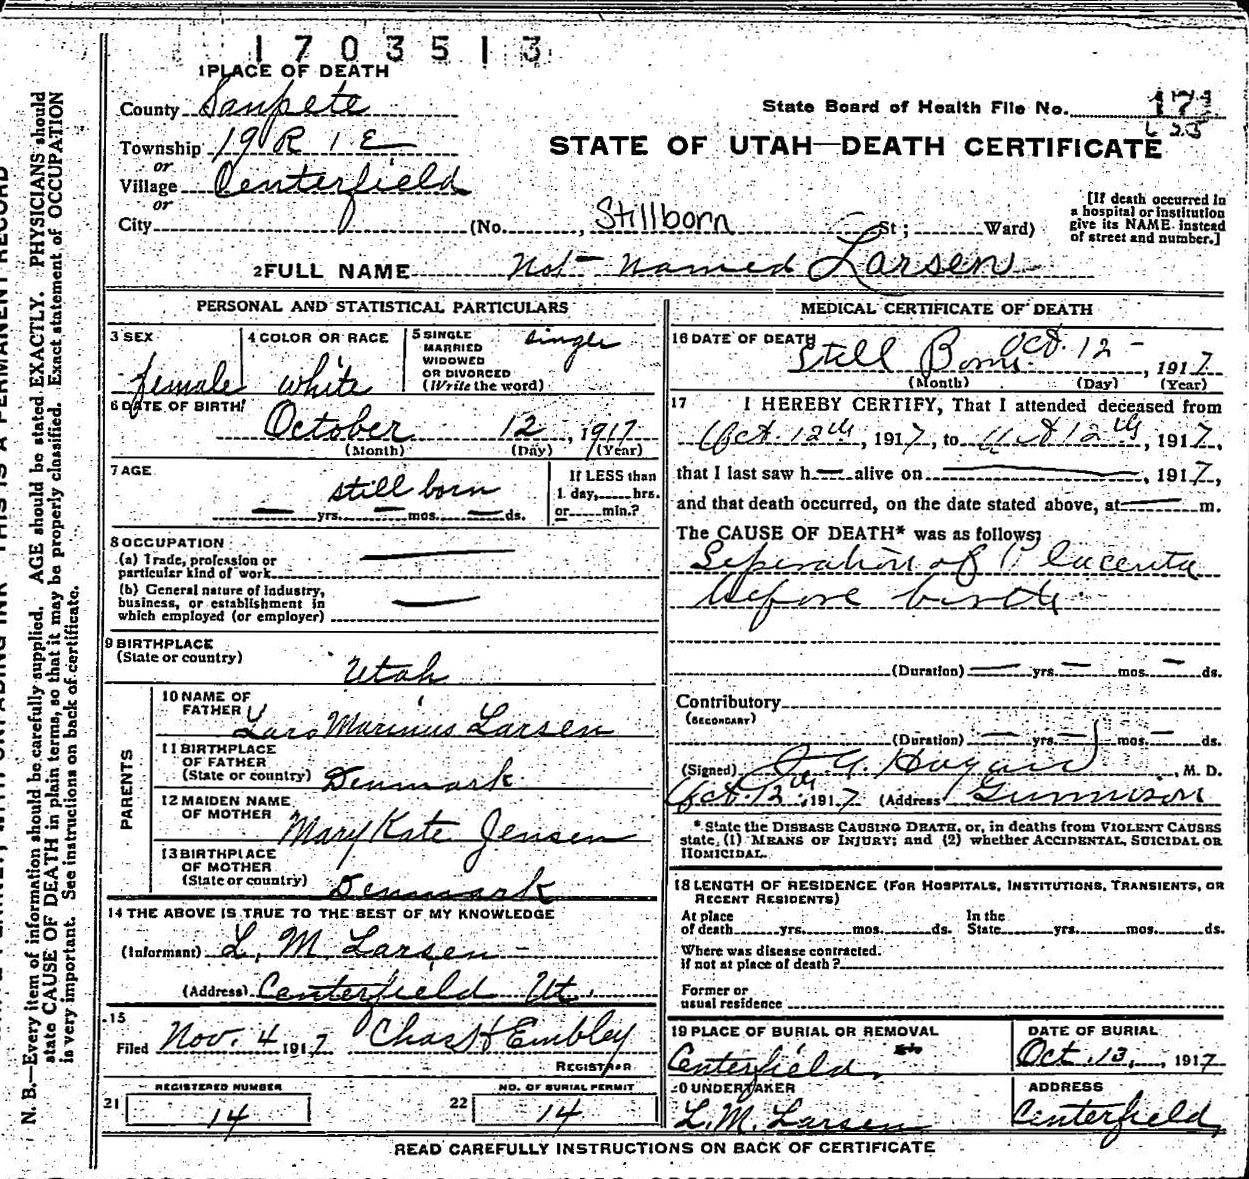 1703513
1 PLACE OF DEATH
County Sanpete
State Board of Health File No. 171
Township 19 R 1 E
STATE OF UTAH—DEATH CERTIFICATE
or
Village Centerfield
or
[If death occurred in a hospital or institution give its NAME instead of street and number.]
City (No. Stillborn St; Ward)
2 FULL NAME Not named Larsen
PERSONAL AND STATISTICAL PARTICULARS
3 SEX female
4 COLOR OR RACE white
5 SINGLE MARRIED WIDOWED OR DIVORCED (Write the word)
6 DATE OF BIRTH October 12, 1917
(Month) (Day) (Year)
7 AGE still born
— yrs. — mos. — ds.
If LESS than 1 day, hrs. or min.?
8 OCCUPATION
(a) Trade, profession or particular kind of work —
(b) General nature of industry, business, or establishment in which employed (or employer) —
9 BIRTHPLACE
(State or country) Utah
PARENTS
10 NAME OF FATHER Lars Marinus Larsen
11 BIRTHPLACE OF FATHER (State or country) Denmark
12 MAIDEN NAME OF MOTHER Mary Kate Jensen
13 BIRTHPLACE OF MOTHER (State or country) Denmark
14 THE ABOVE IS TRUE TO THE BEST OF MY KNOWLEDGE
(Informant) L. M. Larsen
(Address) Centerfield Ut.
15
Filed Nov. 4 1917 Chas H Embley
REGISTRAR
REGISTERED NUMBER
21 14
NO. OF BURIAL PERMIT
22 14
MEDICAL CERTIFICATE OF DEATH
16 DATE OF DEATH Still Born Oct. 12 - , 1917
(Month) (Day) (Year)
17 I HEREBY CERTIFY, That I attended deceased from
Oct. 12th, 1917, to 12th, 1917,
that I last saw h— alive on —, 1917,
and that death occurred, on the date stated above, at — m.
The CAUSE OF DEATH* was as follows:
Seperation of Placenta
before birth.
(Duration) — yrs. — mos. — ds.
Contributory
(SECONDARY)
(Duration) — yrs. — mos. — ds.
(Signed) Hagan, M. D.
Oct. 12th, 1917 (Address Gunnison
* State the DISEASE CAUSING DEATH, or, in deaths from VIOLENT CAUSES
state, (1) MEANS OF INJURY; and (2) whether ACCIDENTAL, SUICIDAL OR
HOMICIDAL.
18 LENGTH OF RESIDENCE (FOR HOSPITALS, INSTITUTIONS, TRANSIENTS, OR
RECENT RESIDENTS)
At place of death yrs. mos. ds. In the State yrs. mos. ds.
Where was disease contracted.
if not at place of death?
Former or
usual residence
19 PLACE OF BURIAL OR REMOVAL
Centerfield
DATE OF BURIAL
Oct. 13, 1917
20 UNDERTAKER
L. M. Larsen
ADDRESS
Centerfield
READ CAREFULLY INSTRUCTIONS ON BACK OF CERTIFICATE
N. B.—Every item of information should be carefully supplied. AGE should be stated EXACTLY. PHYSICIANS should
state CAUSE OF DEATH in plain terms, so that it may be properly classified. Exact statement of OCCUPATION
is very important. See instructions on back of certificate.